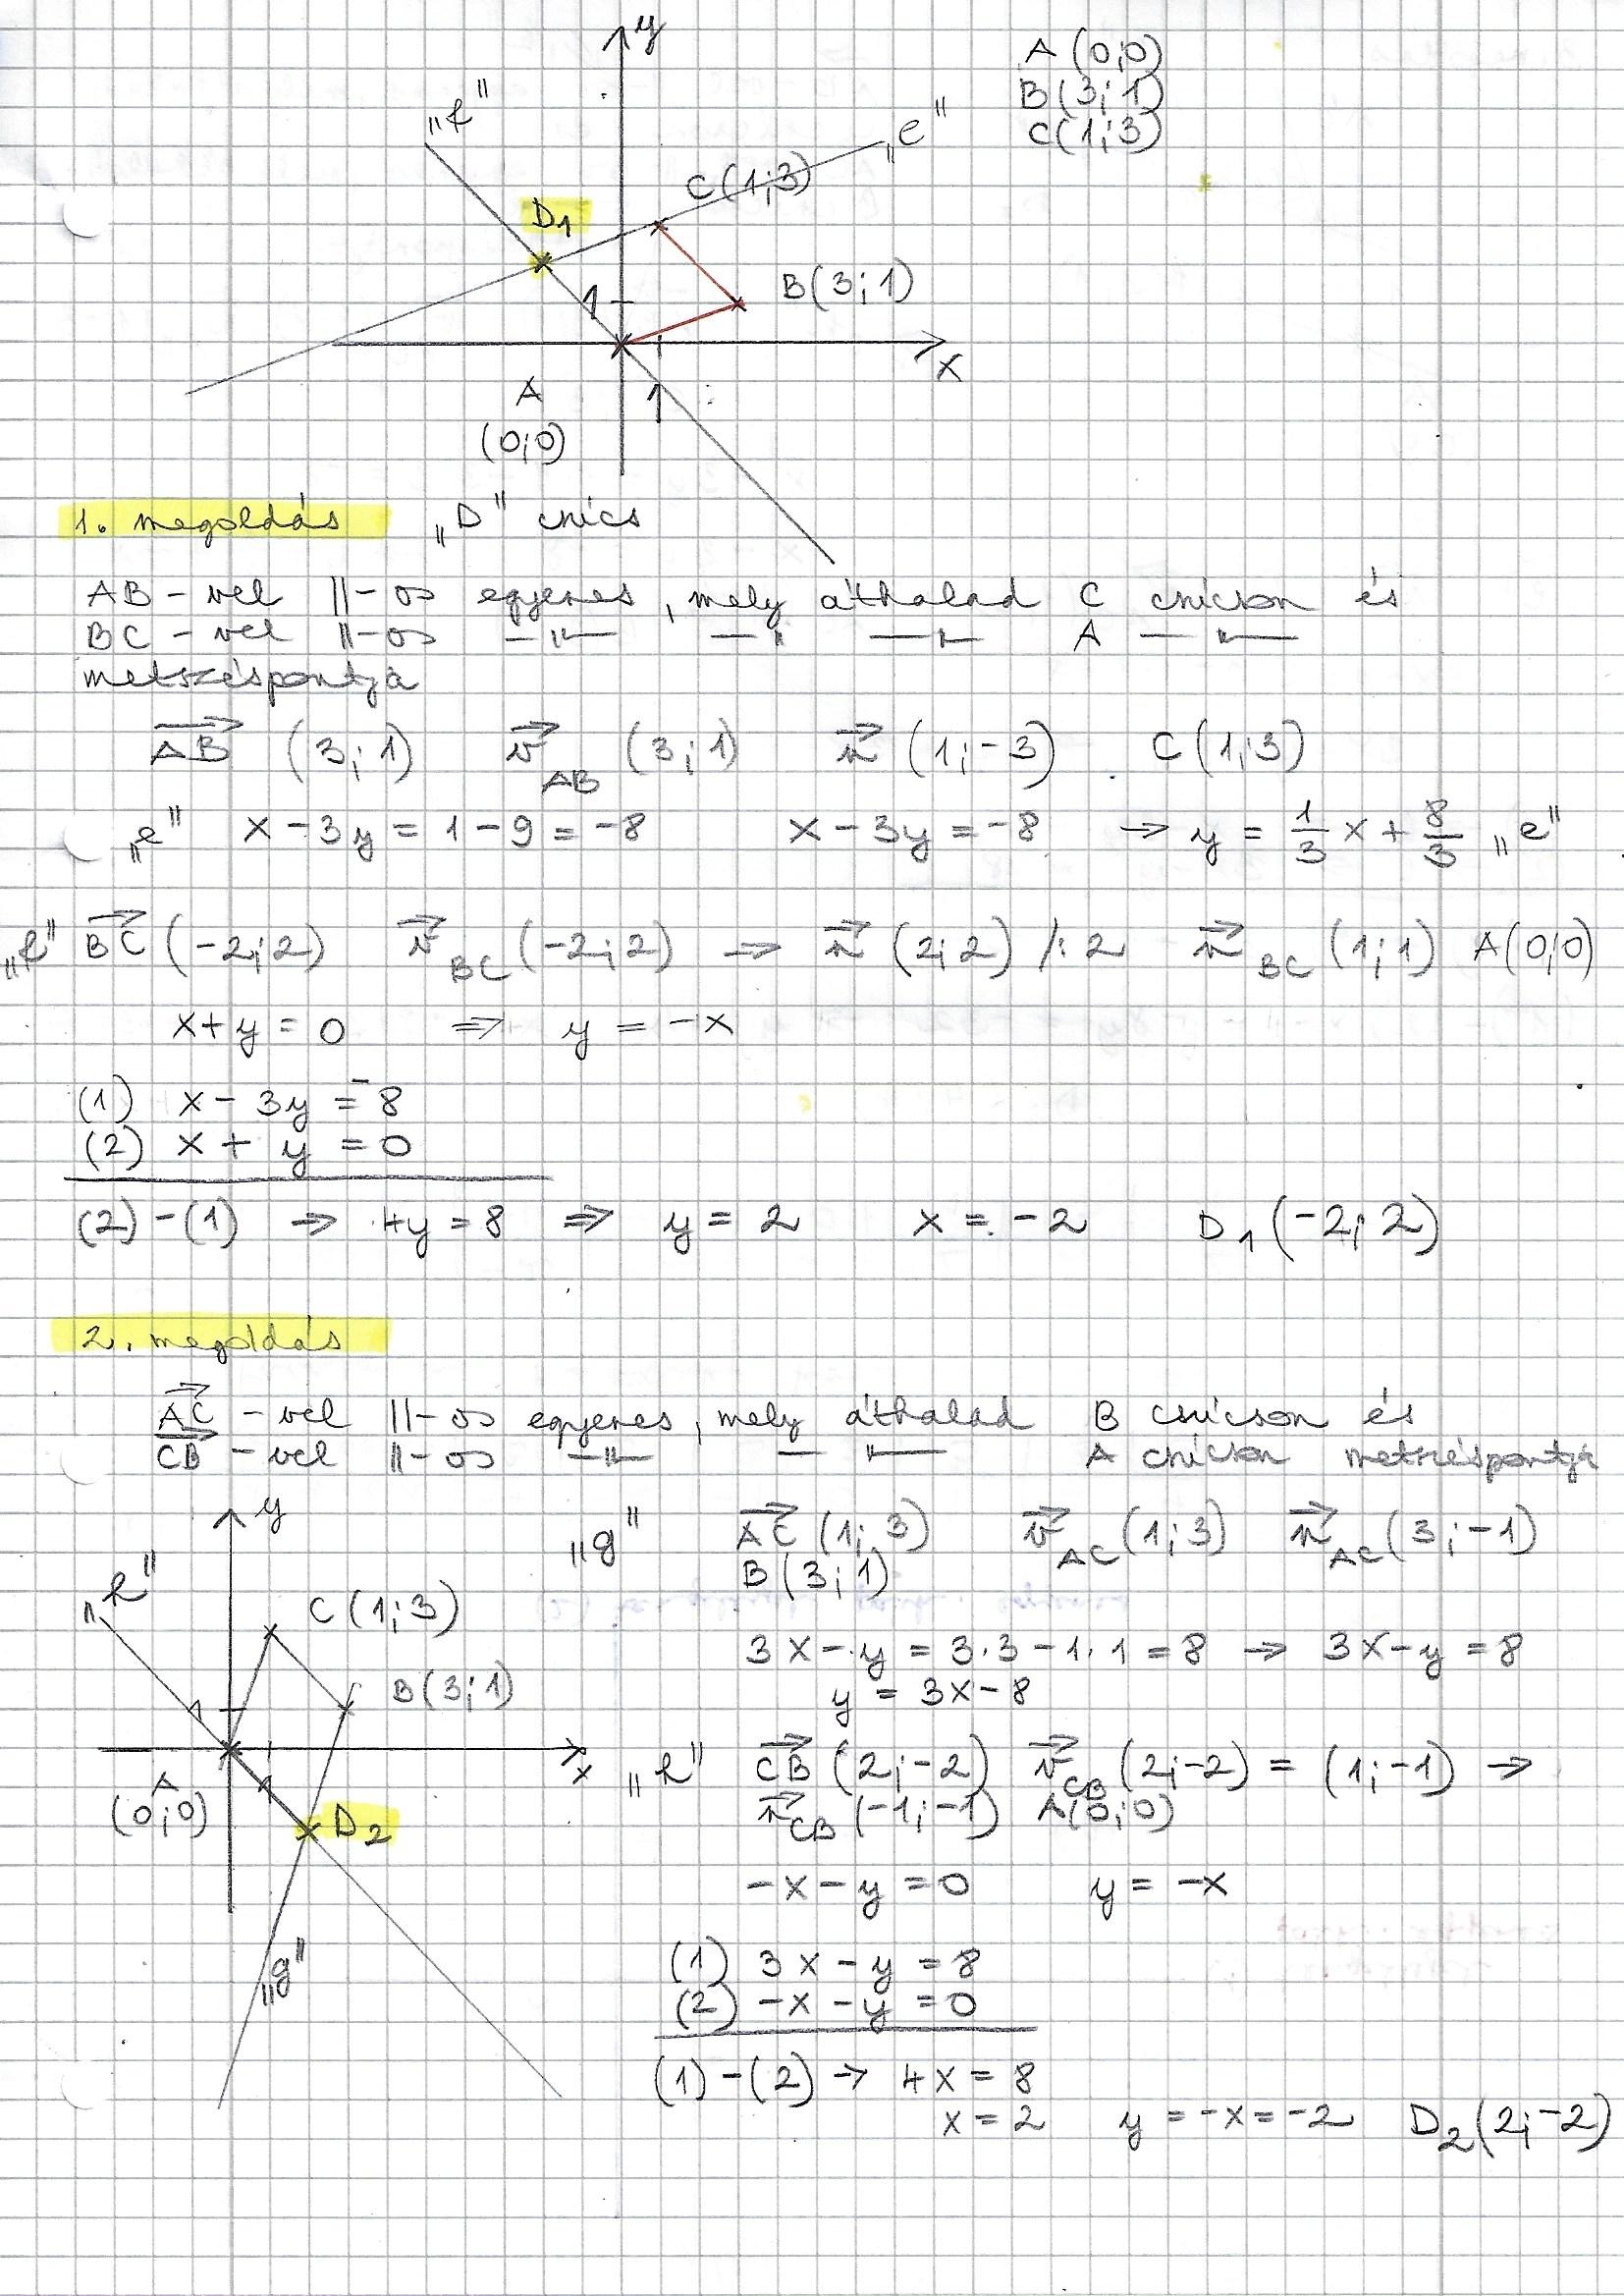 y
A (0;0)
B(3;1)
C(1;3)
„f"
„e"
C(1;3)
D1
B(3;1)
1
x
A
1
(0;0)
1. megoldás „D" csúcs
AB - vel ||-os egyenes, mely áthalad C csúcson és
BC - vel ||-os —„— —„ —„— A —„—
metszéspontja
AB (3;1) v AB (3;1) n (1;-3) C(1;3)
„e" x-3y = 1-9 = -8 x-3y = -8 → y = 1/3 x + 8/3 „e"
„f" BC (-2;2) v BC (-2;2) → n (2;2) /:2 n BC (1;1) A(0;0)
x+y = 0 ⇒ y = -x
(1) x - 3y = -8
(2) x + y = 0
(2)-(1) → 4y = 8 ⇒ y = 2 x = -2 D1(-2;2)
2. megoldás
AC - vel ||-os egyenes, mely áthalad B csúcson és
CB - vel ||-os —„— —„— A csúcson metszéspontja
y
„g" AC (1;3) v AC (1;3) n AC (3;-1)
B(3;1)
„h"
C(1;3)
3x - y = 3·3 - 1·1 = 8 → 3x - y = 8
B(3;1)
y = 3x - 8
1
x
„h" CB (2;-2) v CB (2;-2) = (1;-1) →
A
1
(0;0)
n CB (-1;-1) A(0;0)
D2
-x - y = 0 y = -x
„g"
(1) 3x - y = 8
(2) -x - y = 0
(1)-(2) → 4x = 8
x = 2 y = -x = -2 D2(2;-2)